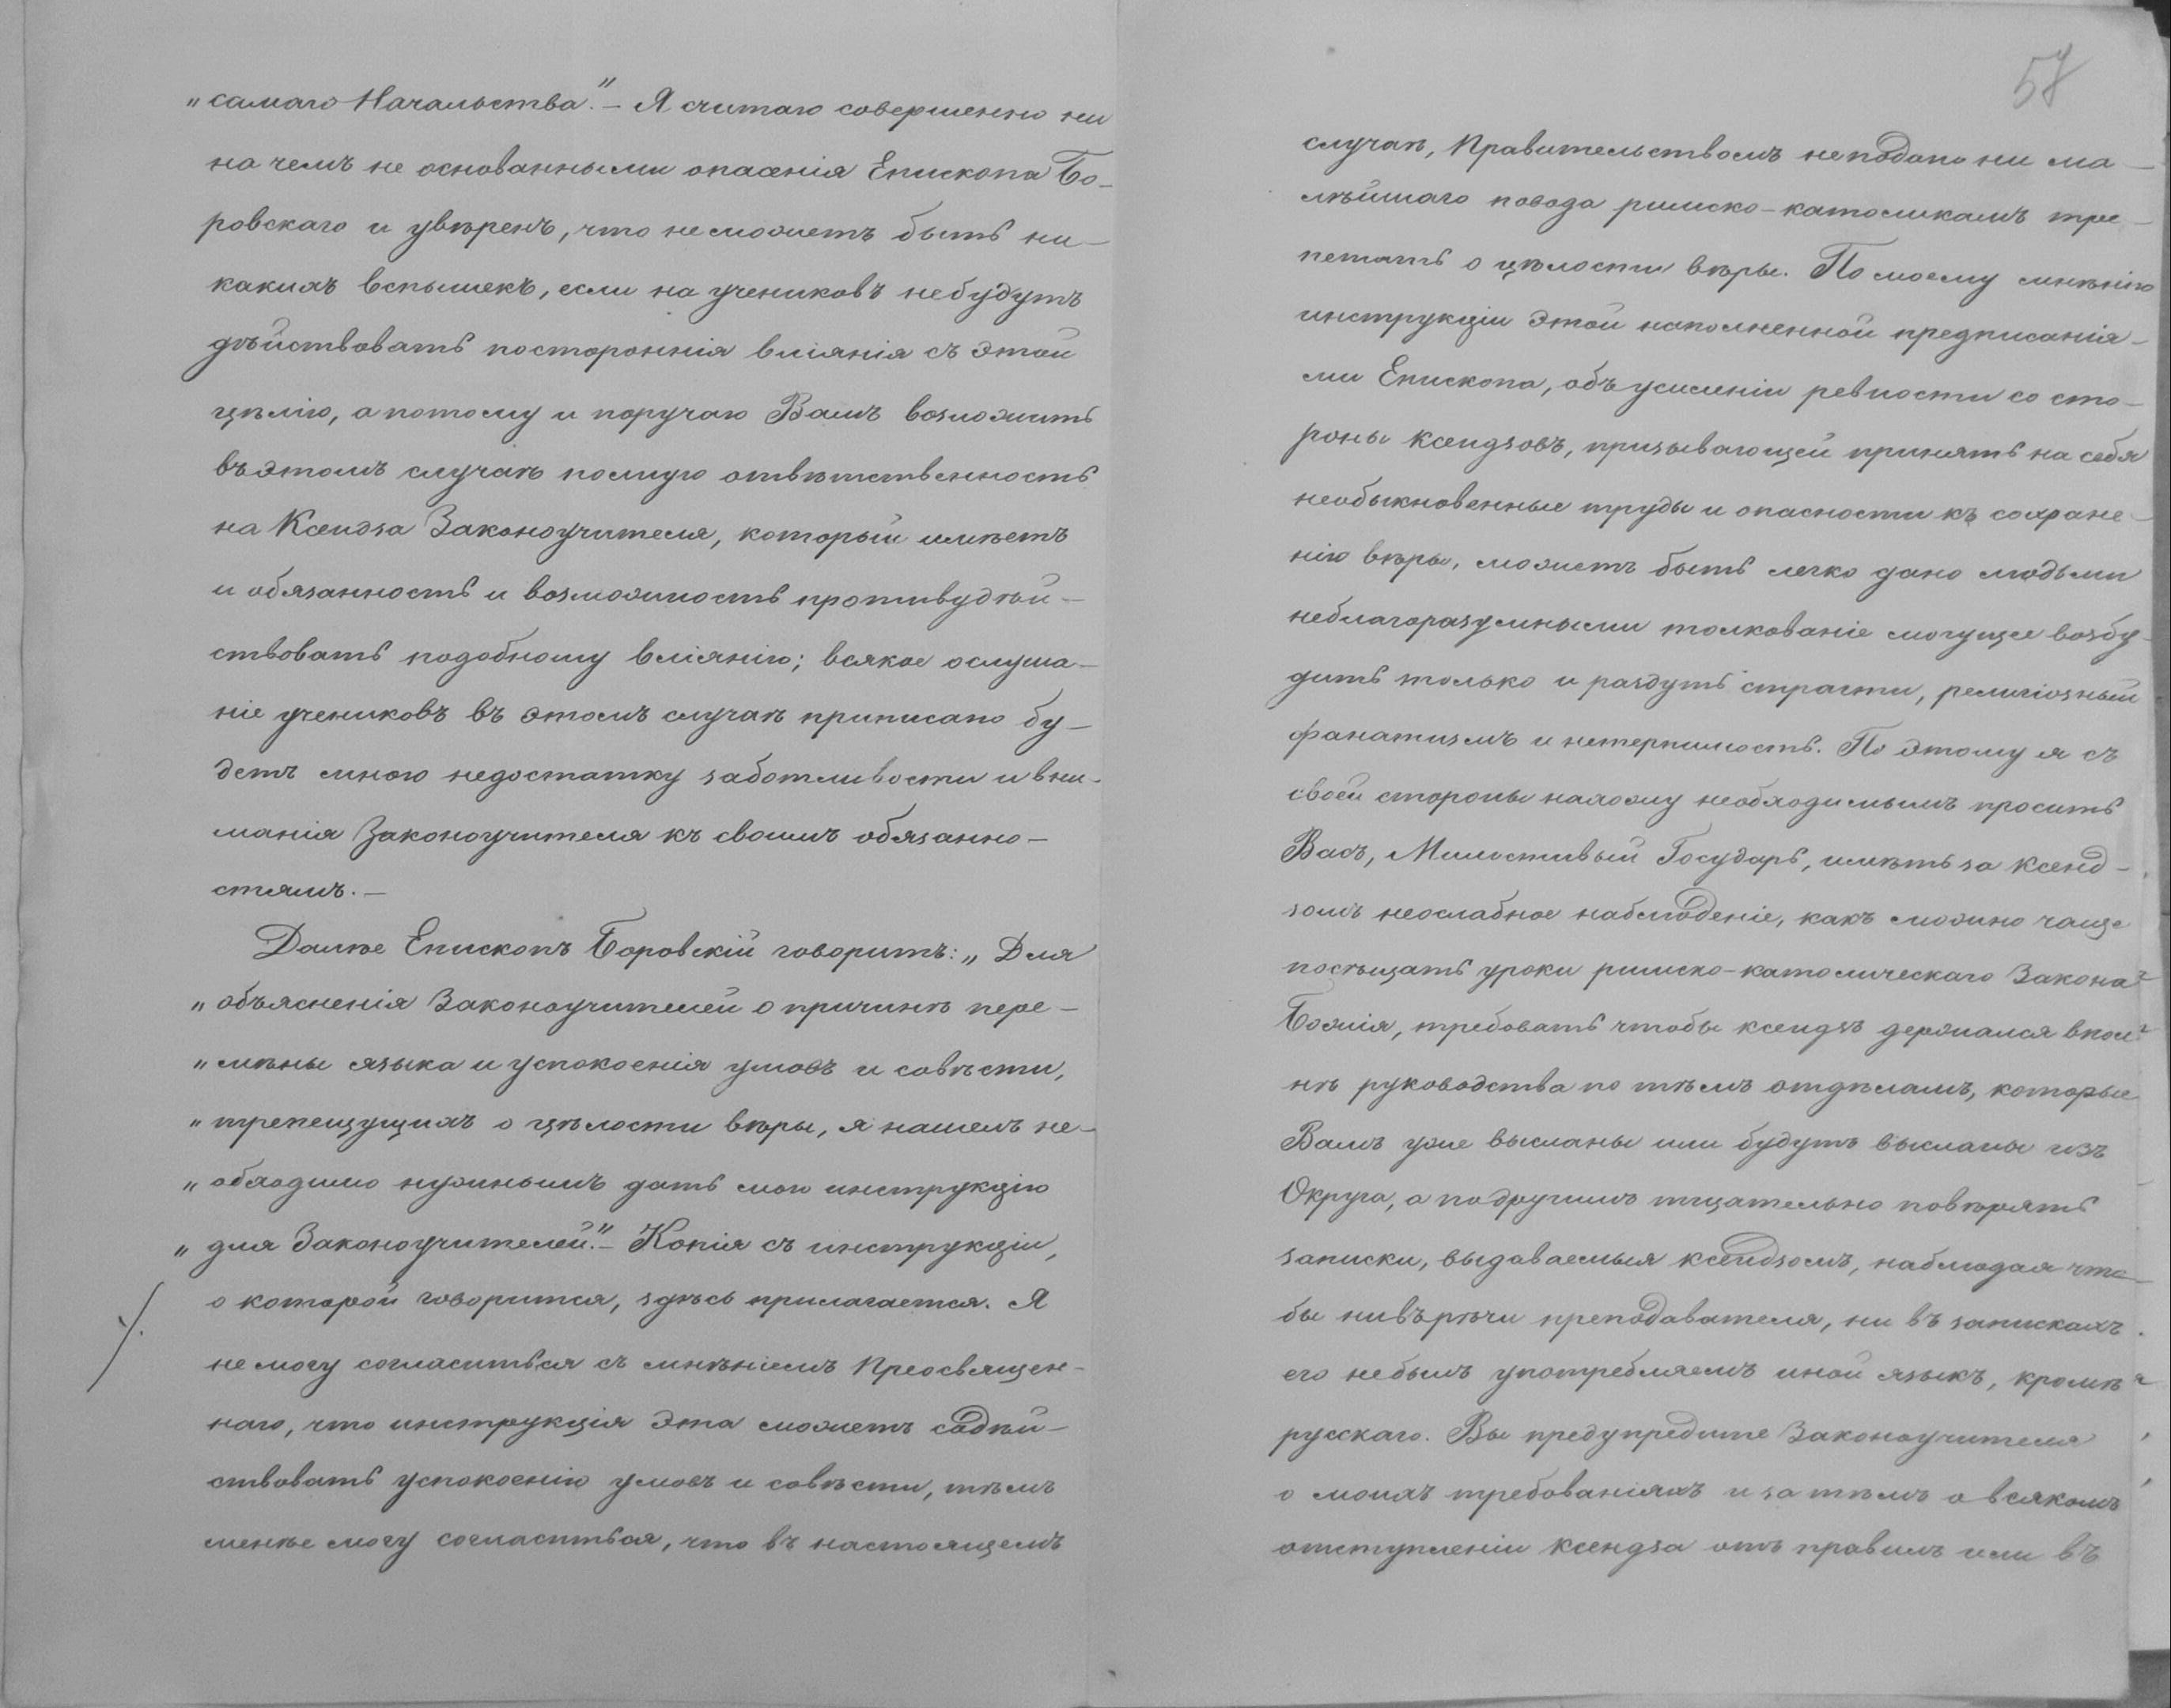 „самаго Начальства." — Я считаю совершенно ни
на чемъ не основанными опасенія Епископа Бо-
ровскаго и увѣренъ, что неможетъ быть ни-
какихъ вспышекъ, если на учениковъ небудутъ
дѣйствовать постороннія вліянія съ этой
цѣлію, а потому и поручаю Вамъ возложить
въ этомъ случаѣ полную отвѣтственность
на Ксендза Законоучителя, который имѣетъ
и обязанность и возможность противудѣй-
ствовать подобному вліянію; всякое ослуша-
ніе учениковъ въ этомъ случаѣ приписано бу-
детъ мною недостатку заботливости и вни-
манія Законоучителя къ своимъ обязанно-
стямъ. —
Далѣе Епископъ Боровскій говоритъ: „Для
„объясненія Законоучителей о причинѣ пере-
„мѣны языка и успокоенія умовъ и совѣсти,
„трепещущихъ о цѣлости вѣры, я нашелъ не-
„обходимо нужнымъ дать мою инструкцію
„для Законоучителей." — Копія съ инструкціи,
о которой говорится, здѣсь прилагается. Я
не могу согласиться съ мнѣніемъ Преосвящен-
наго, что инструкція эта можетъ содѣй-
ствовать успокоенію умовъ и совѣсти, тѣмъ
менѣе могу согласиться, что въ настоящемъ
57
случаѣ, Правительствомъ неподано ни ма-
лѣйшаго повода римско-католикамъ тре-
петать о цѣлости вѣры. По моему мнѣнію
инструкціи этой наполненной предписанія-
ми Епископа, объ усиленіи ревности со сто-
роны ксендзовъ, призывающей принять на себя
необыкновенные труды и опасности къ сохране-
нію вѣры, можетъ быть легко дано людьми
неблагоразумными толкованіе могущее возбу-
дить только и раздуть страсти, религіозный
фанатизмъ и нетерпимость. По этому я съ
своей стороны нахожу необходимымъ просить
Васъ, Милостивый Государь, имѣть за ксенд-
зомъ неослабное наблюденіе, какъ можно чаще
посѣщать уроки римско-католическаго Закона
Божія, требовать чтобы ксендзъ держался впол-
нѣ руководства по тѣмъ отдѣламъ, которые
Вамъ уже высланы или будутъ высланы изъ
Округа, а по другимъ тщательно повѣрять
записки, выдаваемыя ксендзомъ, наблюдая что-
бы нивъ рѣчи преподавателя, ни въ запискахъ
его небылъ употребляемъ иной языкъ, кромѣ
русскаго. Вы предупредите Законоучителя
о моихъ требованіяхъ и за тѣмъ о всякомъ
отступленіи ксендза отъ правилъ или въ